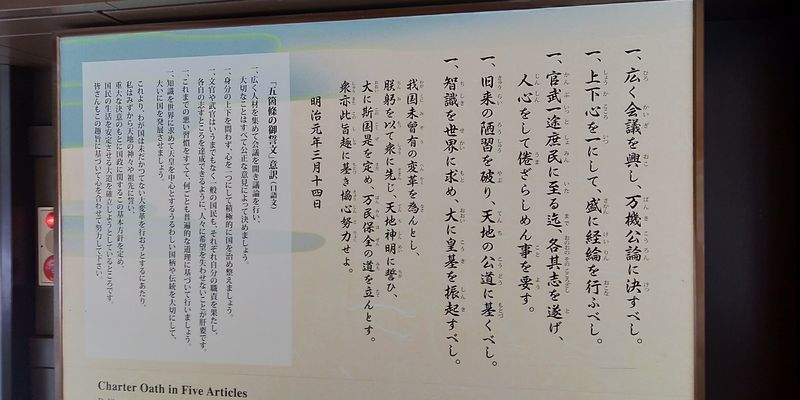 一、広く会議を興し、万機公論に決すべし。
一、上下心を一にして、盛に経綸を行ふべし。
一、官武一途庶民に至る迄、各其志を遂げ、
人心をして倦ざらしめん事を要す。
一、旧来の陋習を破り、天地の公道に基くべし。
一、智識を世界に求め、大に皇基を振起すべし。
我国未曾有の変革を為んとし、
朕躬を以て衆に先じ、天地神明に誓ひ、
大に斯国是を定め、万民保全の道を立んとす。
衆亦此旨趣に基き協心努力せよ。
明治元年三月十四日
「五箇條の御誓文」意訳(口語文)
一、広く人材を集めて会議を開き議論を行い、
大切なことはすべて公正な意見によって決めましょう。
一、身分の上下を問わず、心を一つにして積極的に国を治め整えましょう。
一、文官や武官はいうまでもなく一般の国民も、それぞれ自分の職責を果たし、
各自の志すところを達成できるように、人々に希望を失わせないことが肝要です。
一、これまでの悪い習慣をすてて、何ごとも普遍的な道理に基づいて行いましょう。
一、知識を世界に求めて天皇を中心とするうるわしい国柄や伝統を大切にして、
大いに国を発展させましょう。
これより、わが国は未だかつてない大変革を行おうとするにあたり、
私はみずから天地の神々や祖先に誓い、
重大な決意のもとに国政に関するこの基本方針を定め、
国民の生活を安定させる大道を確立しようとしているところです。
皆さんもこの趣旨に基づいて心を合わせて努力して下さい。
Charter Oath in Five Articles